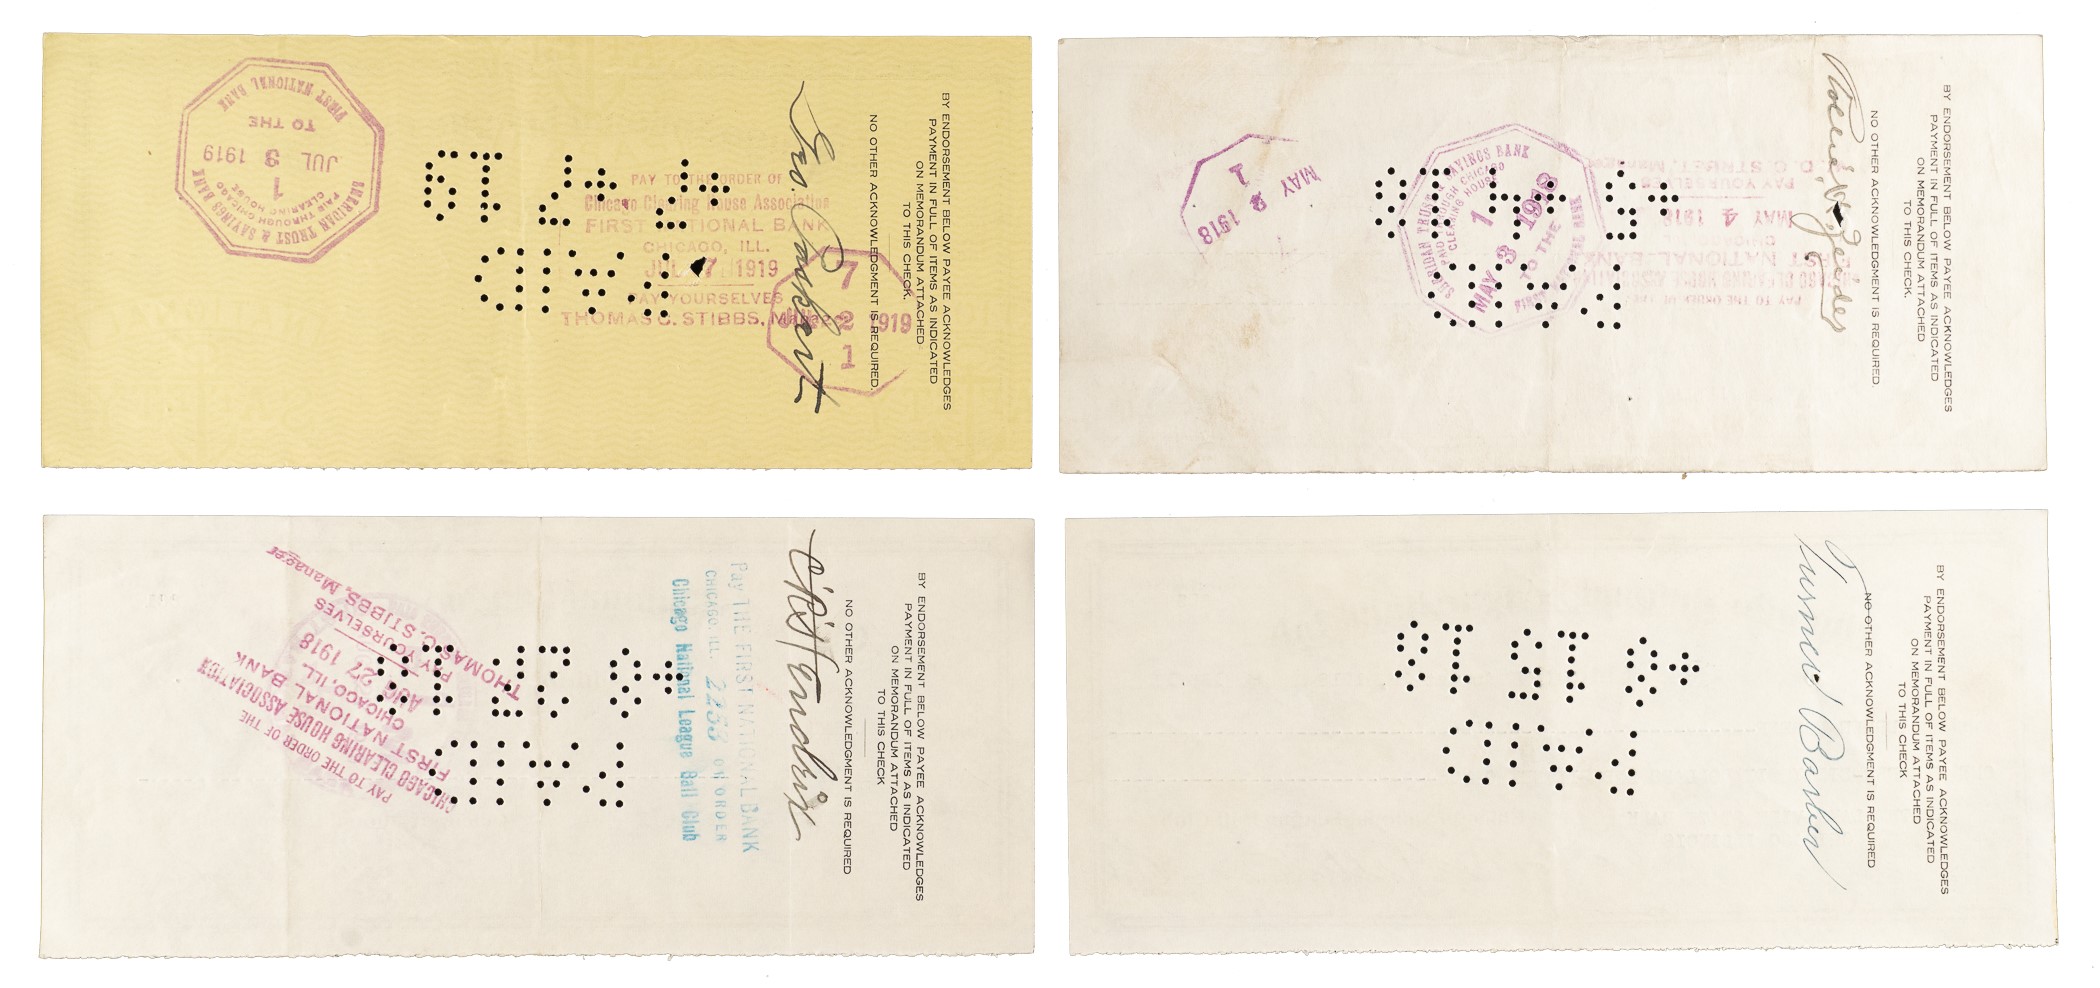 BY ENDORSEMENT BELOW PAYEE ACKNOWLEDGES
PAYMENT IN FULL OF ITEMS AS INDICATED
ON MEMORANDUM ATTACHED
TO THIS CHECK.
NO OTHER ACKNOWLEDGMENT IS REQUIRED.
PAY TO THE ORDER OF
Chicago Clearing House Association
FIRST NATIONAL BANK
CHICAGO, ILL.
1919
PAY YOURSELVES
THOMAS C. STIBBS, Manager
7
2 1919
1
SHERIDAN TRUST & SAVINGS BANK
PAID THROUGH CHICAGO
CLEARING HOUSE
1
JUL 3 1919
TO THE
FIRST NATIONAL BANK
PAID
BY ENDORSEMENT BELOW PAYEE ACKNOWLEDGES
PAYMENT IN FULL OF ITEMS AS INDICATED
ON MEMORANDUM ATTACHED
TO THIS CHECK.
NO OTHER ACKNOWLEDGMENT IS REQUIRED.
PAY TO THE ORDER OF THE
CHICAGO CLEARING HOUSE ASSOCIATION
FIRST NATIONAL BANK
CHICAGO
MAY 4 1918
PAY YOURSELVES
STREET, Manager
SHERIDAN TRUST & SAVINGS BANK
PAID THROUGH CHICAGO
CLEARING HOUSE
1
MAY 3 1918
TO THE
FIRST NATIONAL BANK
MAY 2 1918
1
PAID
BY ENDORSEMENT BELOW PAYEE ACKNOWLEDGES
PAYMENT IN FULL OF ITEMS AS INDICATED
ON MEMORANDUM ATTACHED
TO THIS CHECK
NO OTHER ACKNOWLEDGMENT IS REQUIRED
Pay THE FIRST NATIONAL BANK
CHICAGO, ILL. 2253 OR ORDER
Chicago National League Ball Club
PAY TO THE ORDER OF THE
CHICAGO CLEARING HOUSE ASSOCIATION
FIRST NATIONAL BANK
CHICAGO, ILL.
AUG 27 1918
PAY YOURSELVES
THOMAS C. STIBBS, Manager
PAID
BY ENDORSEMENT BELOW PAYEE ACKNOWLEDGES
PAYMENT IN FULL OF ITEMS AS INDICATED
ON MEMORANDUM ATTACHED
TO THIS CHECK
NO OTHER ACKNOWLEDGMENT IS REQUIRED
Turner Barber
PAID